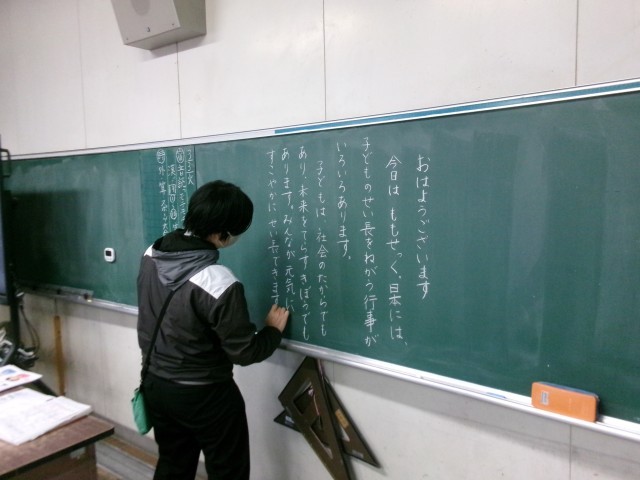 おはようございます
今日は ももせっく、日本には、
子どものせい長をねがう行事が
いろいろあります。
子どもは、社会のたからでも
あり、未来をてらすきぼうでも
あります。みんなが元気に
すこやかにせい長できます